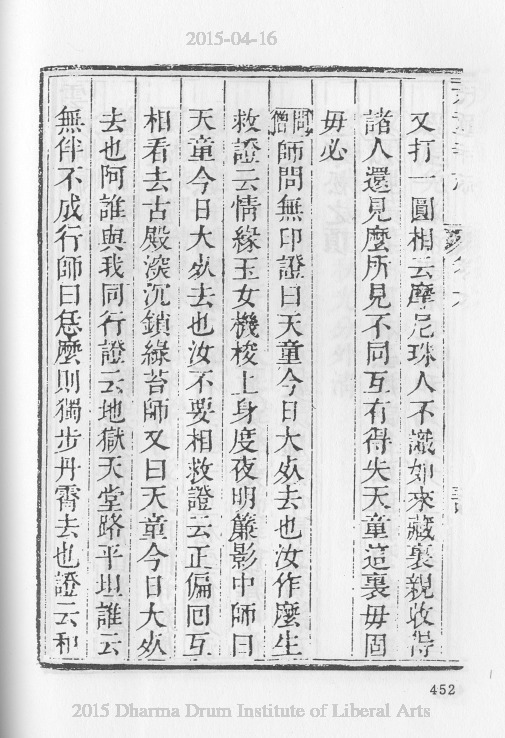 2015-04-16
又打一圓相云摩尼珠人不識如來藏裏親收得
諸人還見麼所見不同互有得失天童這裏毋固
毋必
問僧師問無印證曰天童今日大死去也汝作麼生
救證云情緣玉女機梭上身度夜明簾影中師曰
天童今日大死去也汝不要相救證云正偏回互
相看去古殿深沉鎖綠苔師又曰天童今日大死
去也阿誰與我同行證云地獄天堂路平坦誰云
無伴不成行師曰恁麼則獨步丹霄去也證云和
452
2015 Dharma Drum Institute of Liberal Arts